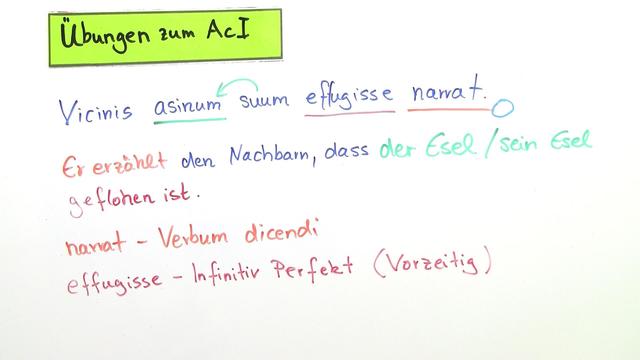 Übungen zum AcI
Vicinis asinum suum effugisse narrat.
Er erzählt den Nachbarn, dass der Esel / sein Esel
geflohen ist.
narrat - Verbum dicendi
effugisse - Infinitiv Perfekt (Vorzeitig)